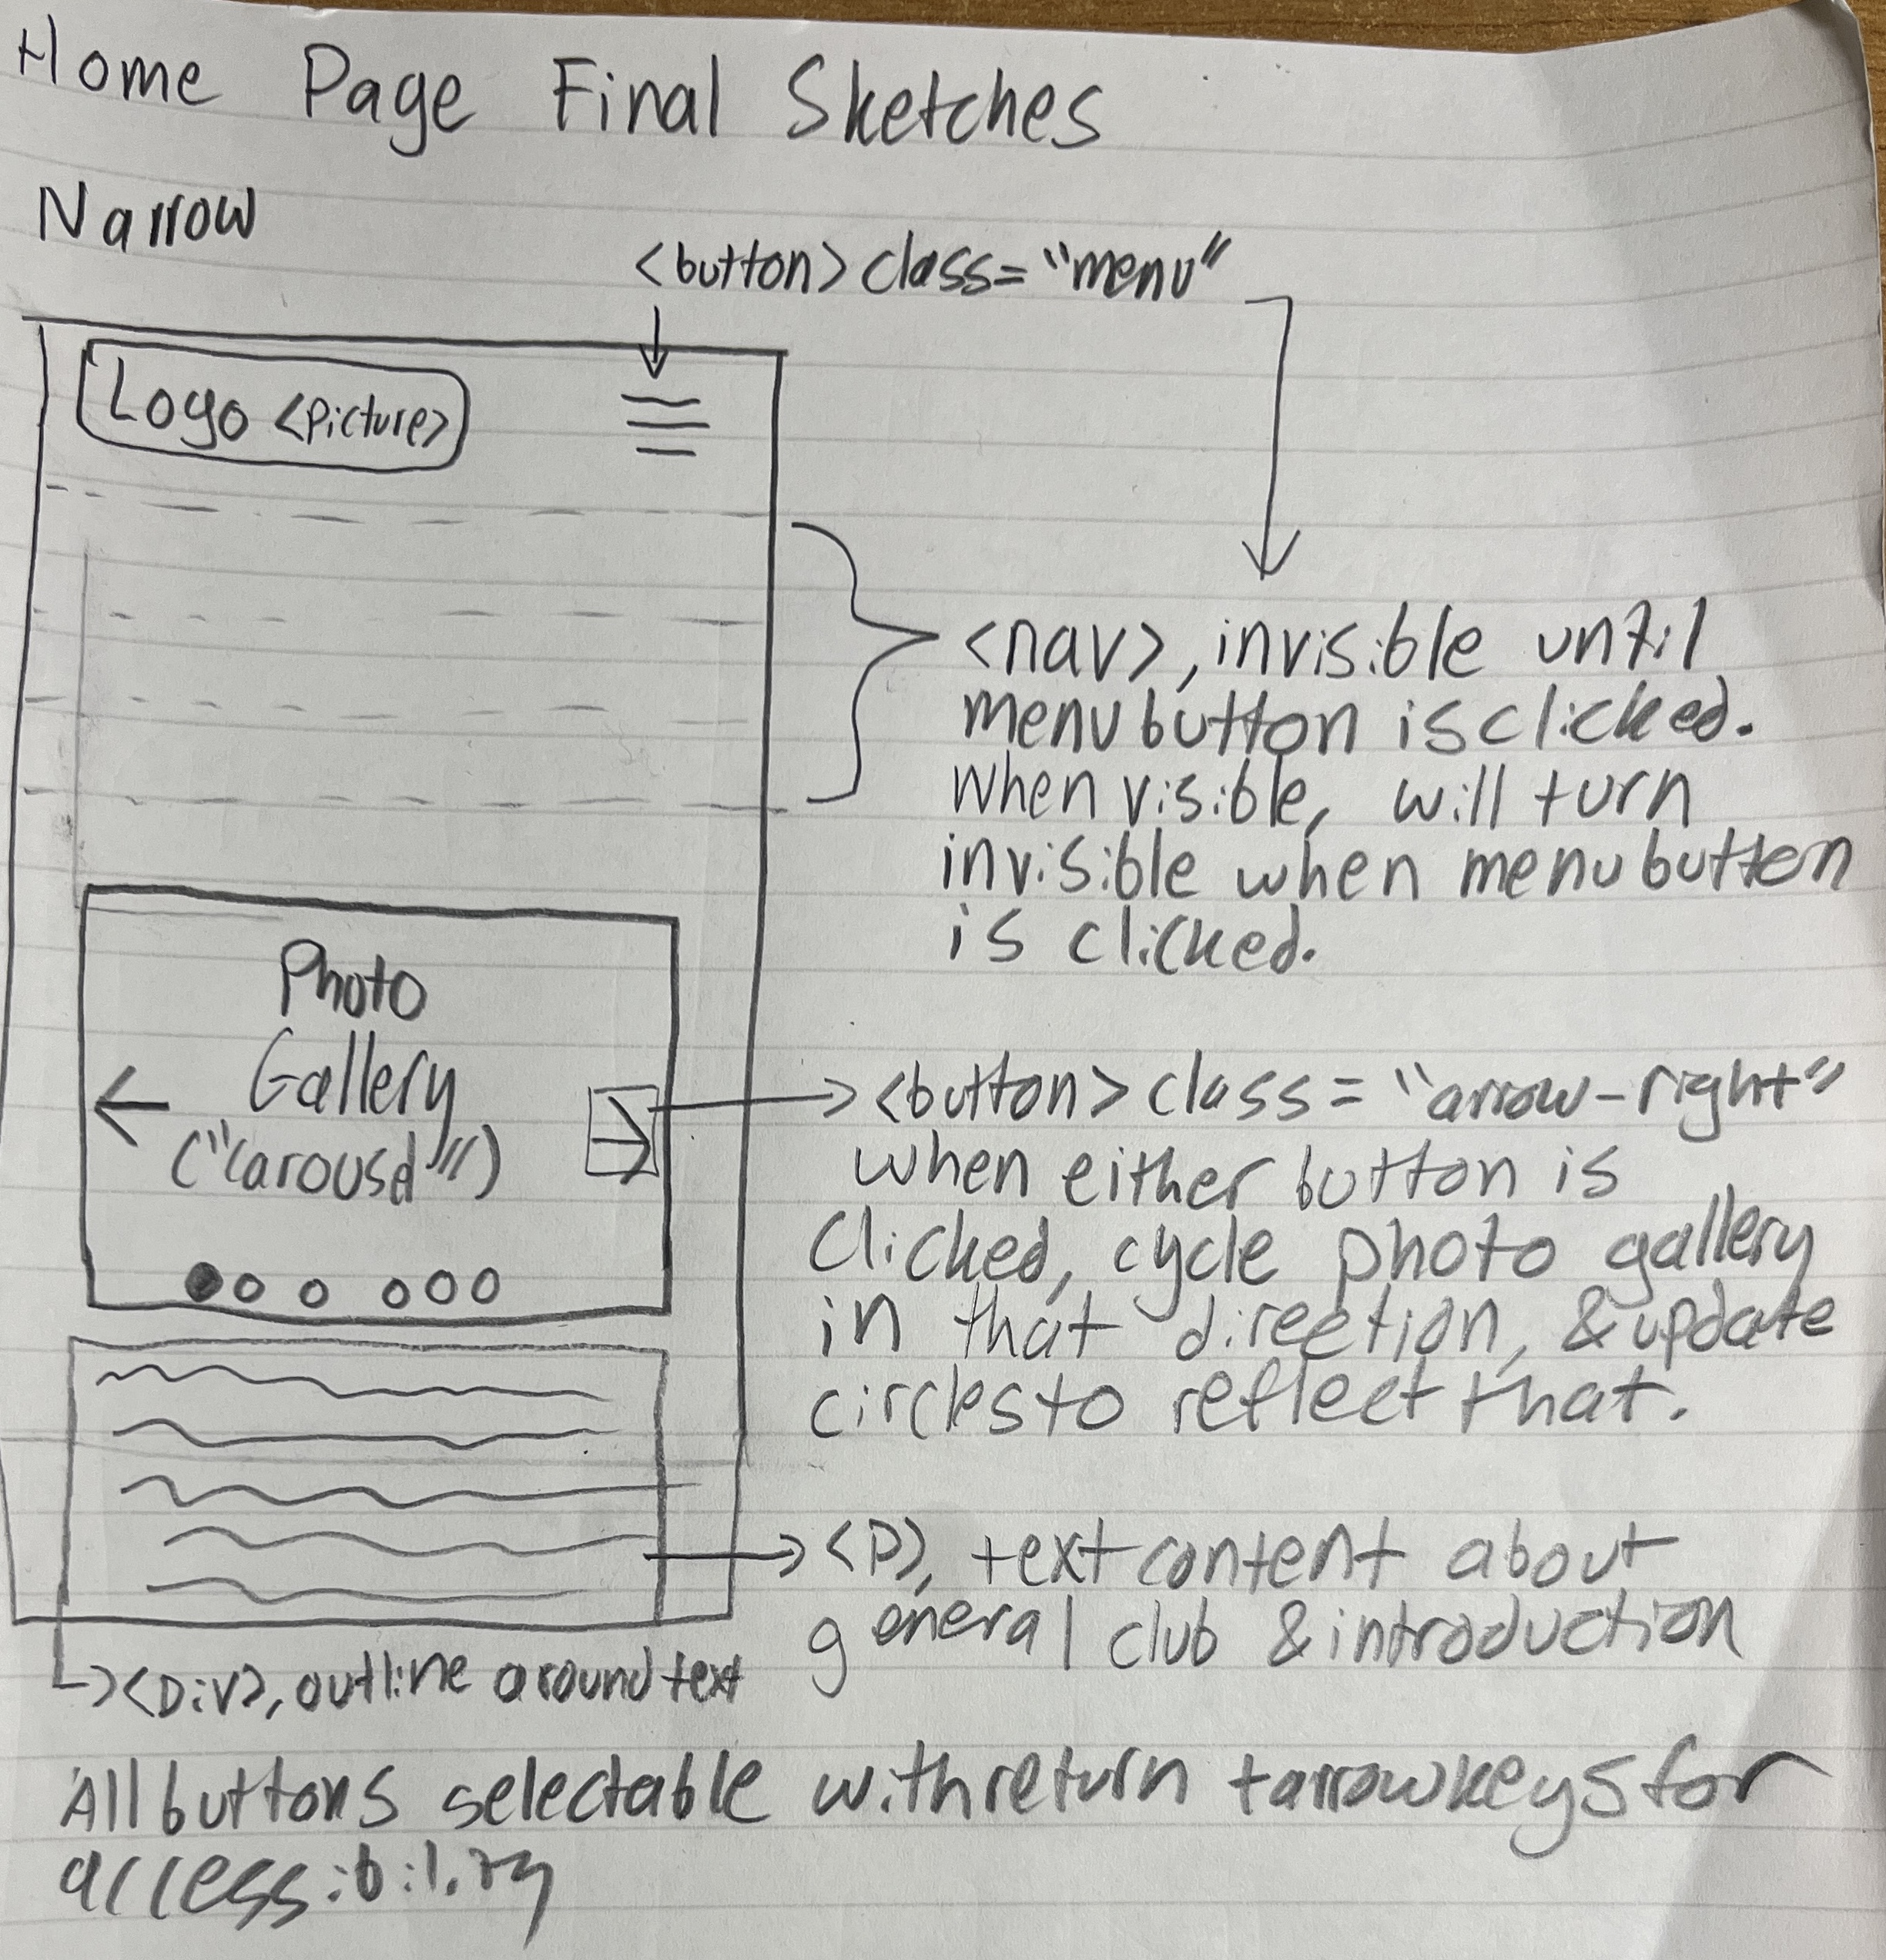 Home Page Final Sketches
Narrow
<button> class="menu"
Logo <picture>
<nav>, invisible until
menu button is clicked.
When visible, will turn
invisible when menu button
is clicked.
Photo
Gallery
("carousel")
<button> class="arrow-right"
when either button is
clicked, cycle photo gallery
in that direction, & update
circles to reflect that.
<P>, text content about
general club & introduction
<Div>, outline around text
All buttons selectable with return + arrow keys for
accessibility